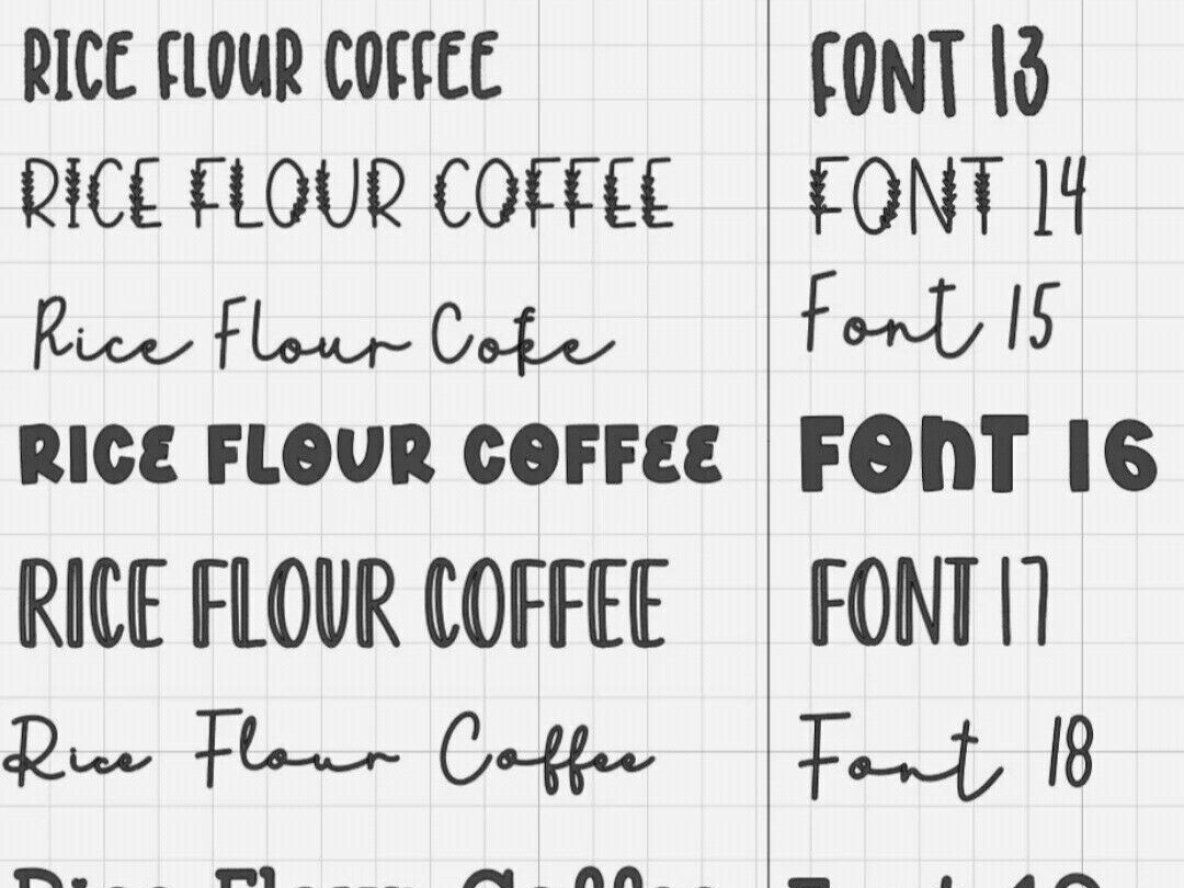 RICE FLOUR COFFEE FONT 13
RICE FLOUR COFFEE FONT 14
Rice Flour Coke Font 15
RICE FLOUR COFFEE FONT 16
RICE FLOUR COFFEE FONT 17
Rice Flour Coffee Font 18
Rice Flour Coffee Font 19